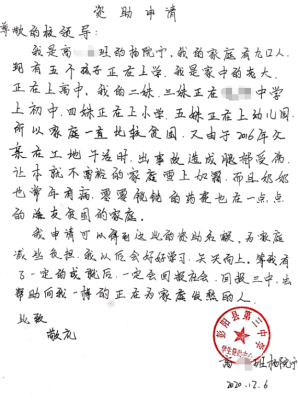 资助申请
尊敬的校领导：
我是高 班的杨院宁，我的家庭有九口人，
现有五个孩子正在上学，我是家中的老大，
正在上高中，我的二妹，三妹正在 中学
上初中，四妹正在上小学，五妹正在上幼儿园，
所以家庭一直比较贫困，又由于2016年父
亲在工地干活时，出事故造成腿部受伤，
让本就不富裕的家庭雪上加霜，而且奶奶
也常年有病，零零碎碎的药费也在一点点
的透支贫困的家庭。
我申请可以得到这此的资助名额，为家庭
减些负担，我以后会好好学习，天天向上，等我有
了一定的成就后，一定会回报社会，回报三中，去
帮助向我一样的正在为家庭发愁的人。
此致
敬礼
彭阳县第三中学
学生资助中心
高 班杨院宁
2020.12.6